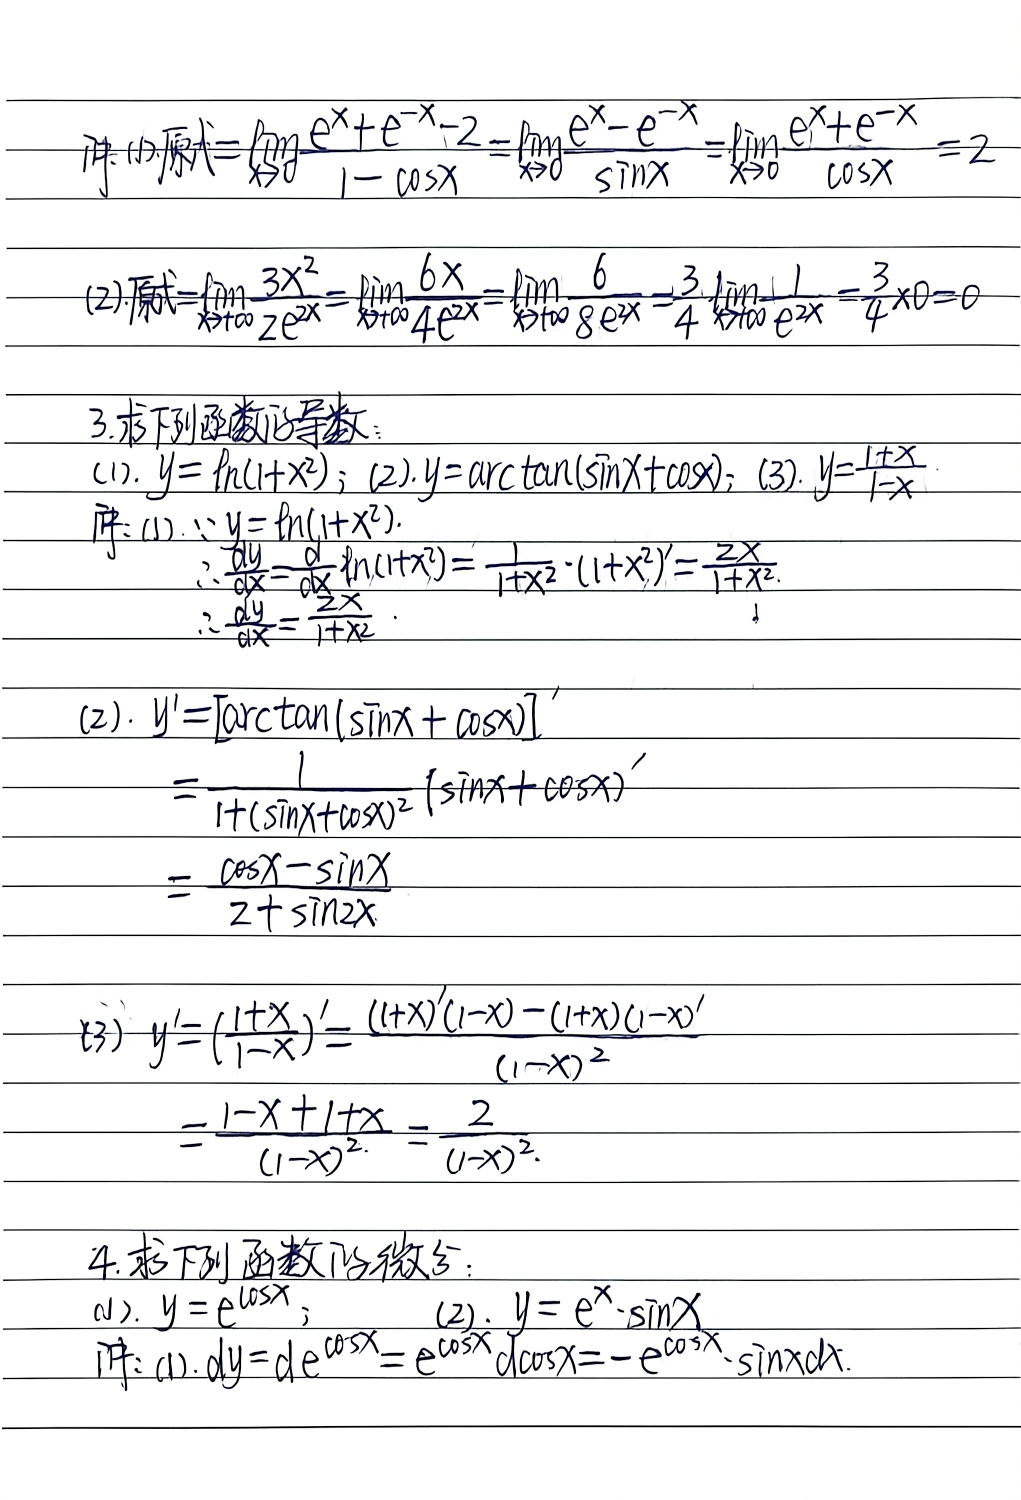 解:(1).原式=lim_{x→0} (e^x+e^{-x}-2)/(1-cosx)=lim_{x→0} (e^x-e^{-x})/sinx=lim_{x→0} (e^x+e^{-x})/cosx=2
(2).原式=lim_{x→+∞} 3x²/2e^{2x}=lim_{x→+∞} 6x/4e^{2x}=lim_{x→+∞} 6/8e^{2x}=3/4 lim_{x→+∞} 1/e^{2x}=3/4×0=0
3.求下列函数的导数:
(1). y=ln(1+x²); (2).y=arctan(sinx+cosx); (3). y=(1+x)/(1-x).
解:(1).∵y=ln(1+x²).
∴dy/dx=d/dx ln(1+x²)=1/(1+x²)·(1+x²)'=2x/(1+x²).
∴dy/dx=2x/(1+x²).
(2). y'=[arctan(sinx+cosx)]'
=1/(1+(sinx+cosx)²) (sinx+cosx)'
=(cosx-sinx)/(2+sin2x)
(3) y'=((1+x)/(1-x))'=((1+x)'(1-x)-(1+x)(1-x)')/(1-x)²
=(1-x+1+x)/(1-x)²=2/(1-x)².
4.求下列函数的微分:
(1). y=e^{cosx}; (2). y=e^x·sinx
解:(1).dy=de^{cosx}=e^{cosx}dcosx=-e^{cosx}·sinxdx.